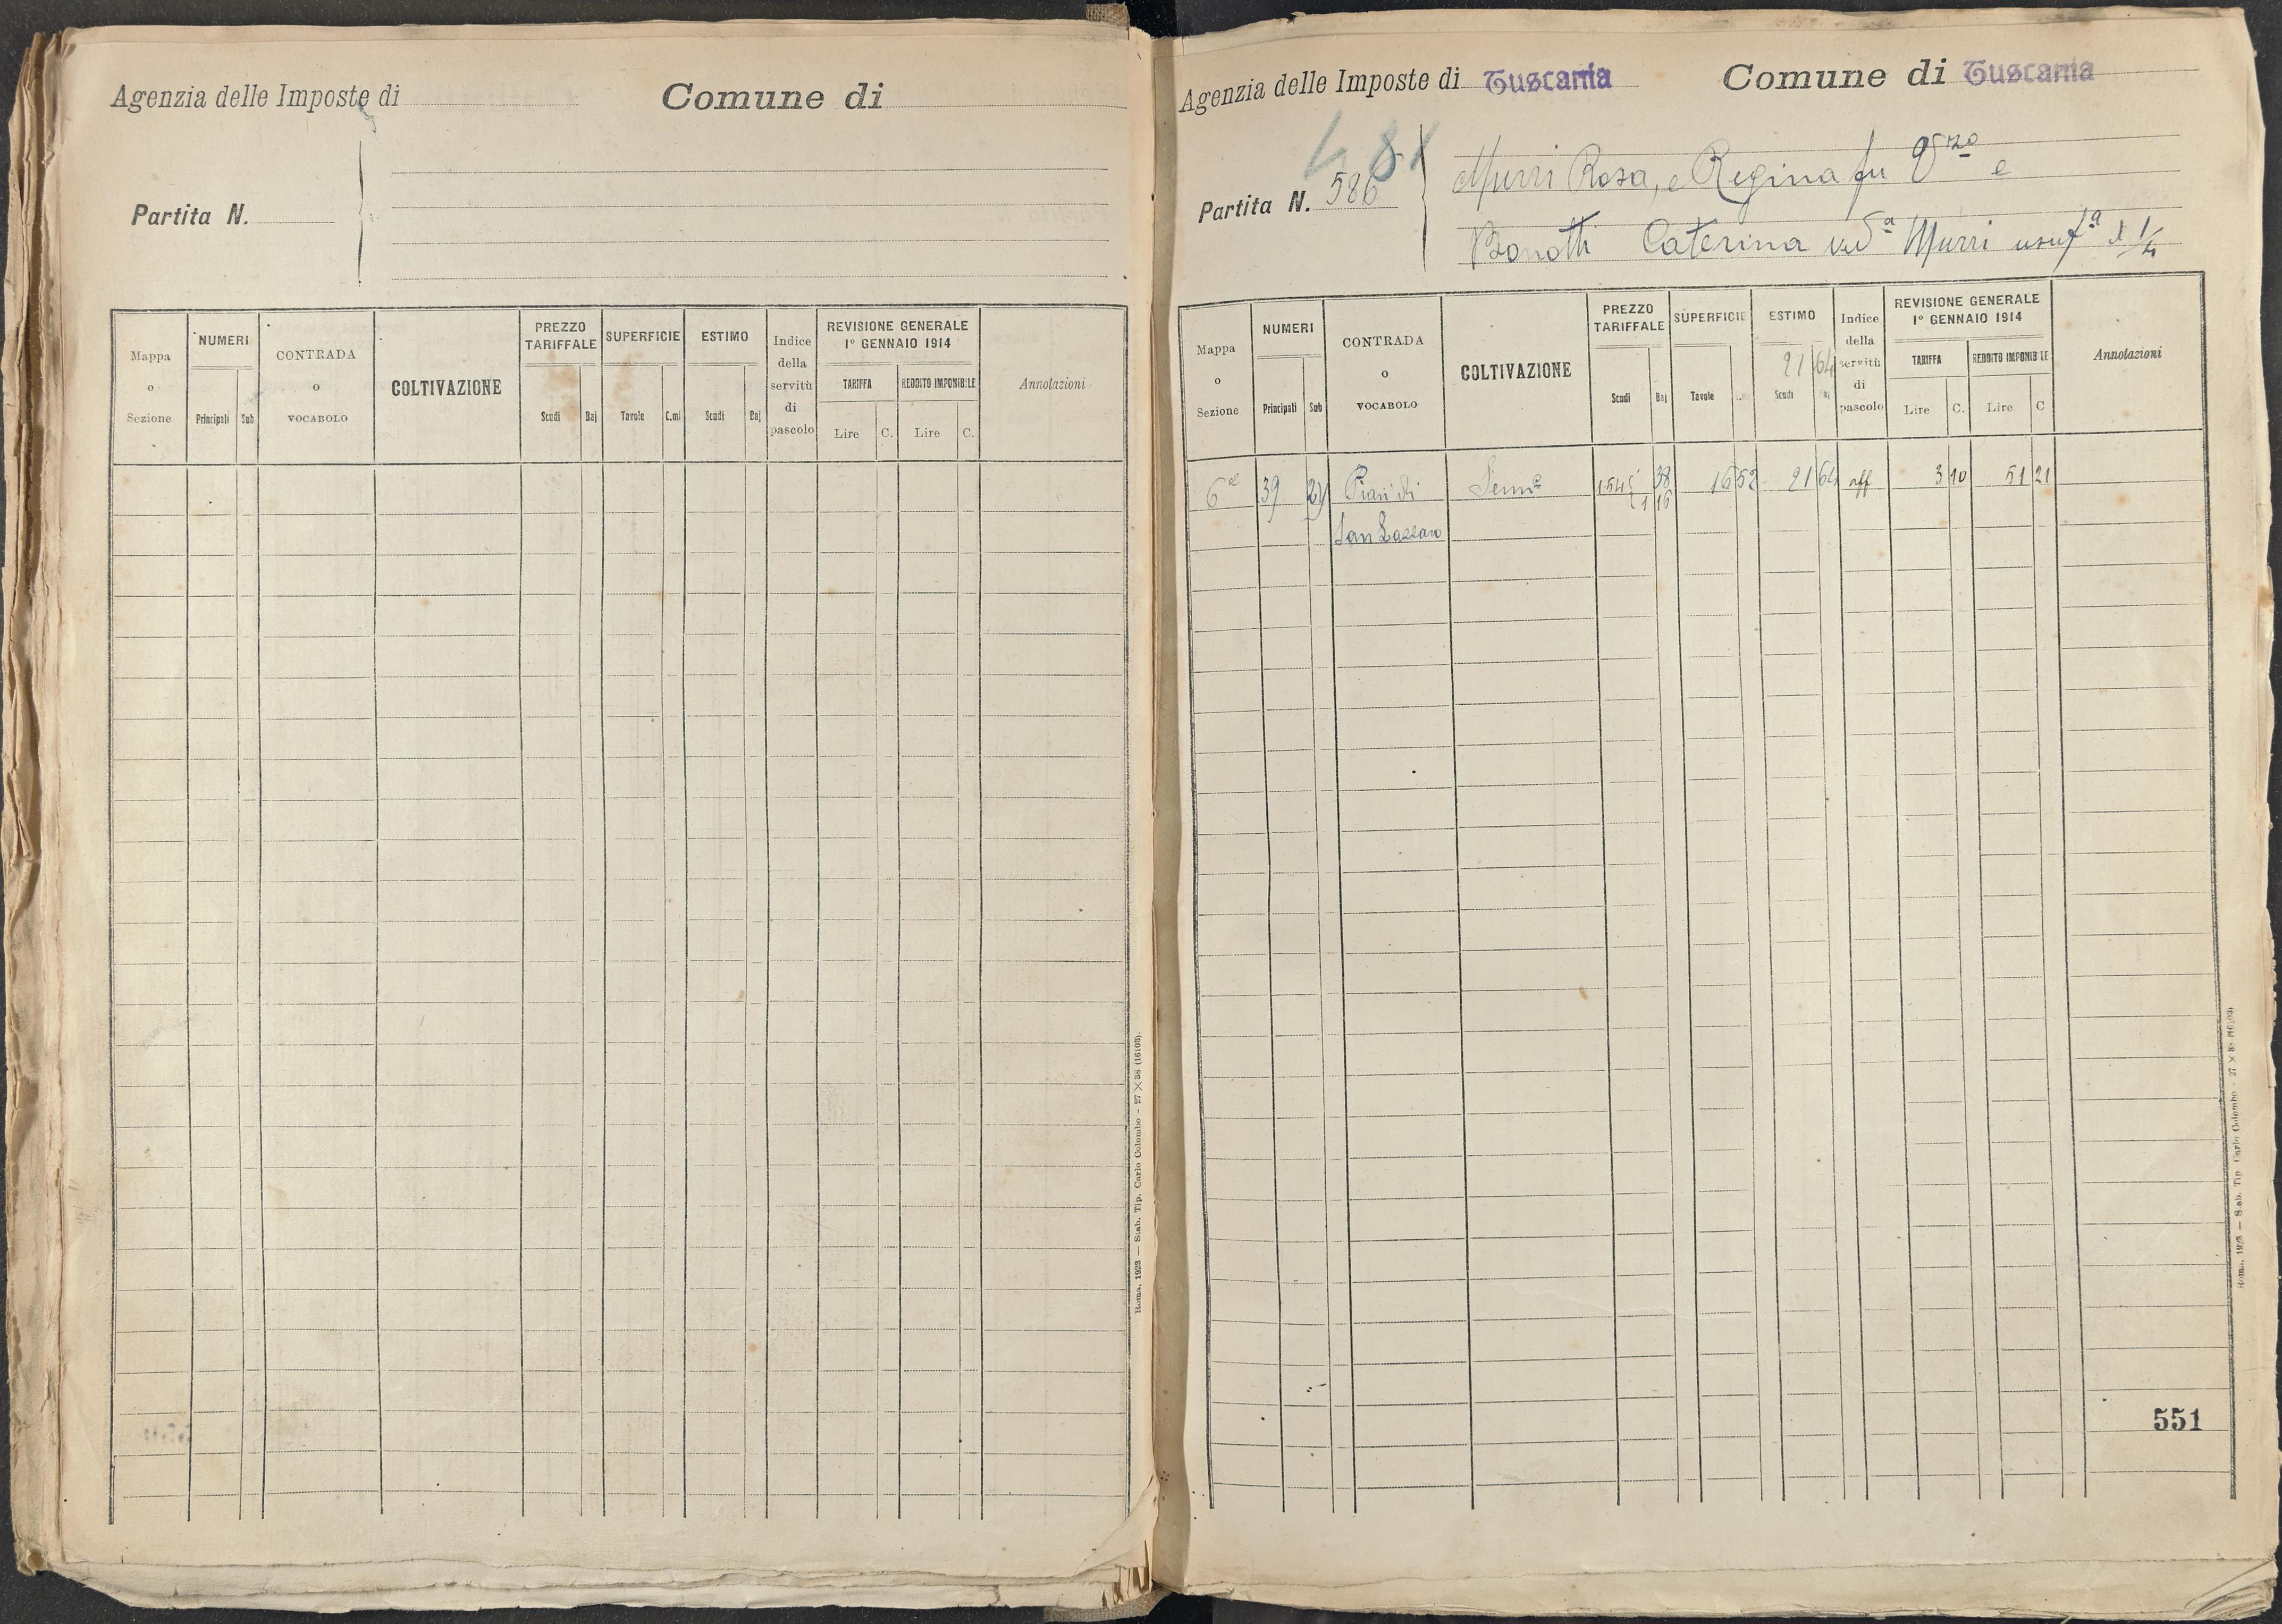 Agenzia delle Imposte di
Comune di
Partita N.
Mappa o Sezione
NUMERI
Principali Sub
CONTRADA o VOCABOLO
COLTIVAZIONE
PREZZO TARIFFALE
Scudi Baj
SUPERFICIE
Tavole C.mi
ESTIMO
Scudi Baj
Indice della servitù di pascolo
REVISIONE GENERALE
1° GENNAIO 1914
TARIFFA
Lire C.
REDDITO IMPONIBILE
Lire C.
Annotazioni
Roma, 1923 — Stab. Tip. Carlo Colombo - 27 × 38 (16103).
Agenzia delle Imposte di Tuscania
Comune di Tuscania
Partita N. 586
Murri Rosa, e Regina fu e
Caterina ved.a Murri usuf.a 1/4
Mappa o Sezione
NUMERI
Principali Sub
CONTRADA o VOCABOLO
COLTIVAZIONE
PREZZO TARIFFALE
Scudi Baj
SUPERFICIE
Tavole
ESTIMO
21 64
Scudi Baj
Indice della servitù di pascolo
REVISIONE GENERALE
1° GENNAIO 1914
TARIFFA
Lire C.
REDDITO IMPONIBILE
Lire C
Annotazioni
6 39 Pian di 38 16 52 21 64 aff 3 10 51 21
San Lazzaro 1 16
551
Roma, 1923 — Stab. Tip. Carlo Colombo - 27 × 38 (16103)